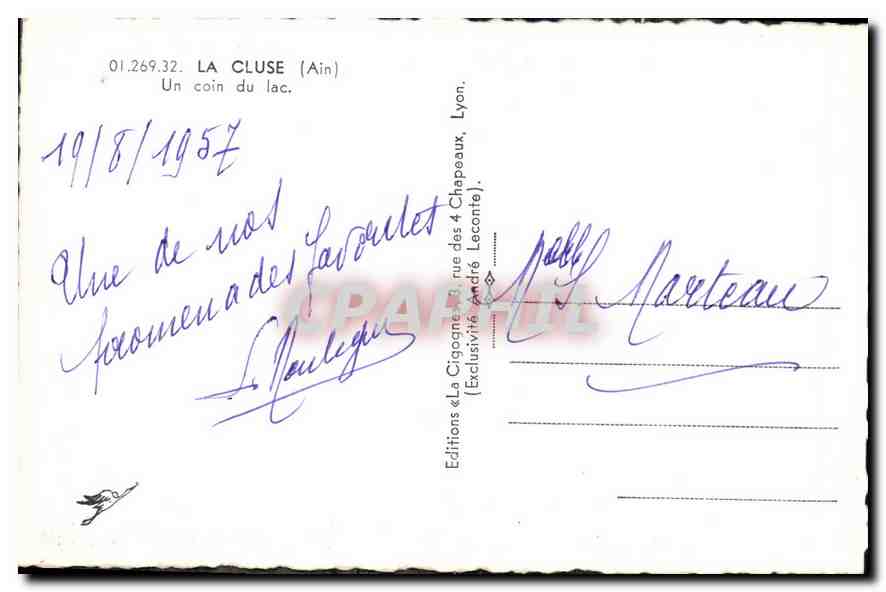 01.269.32. LA CLUSE (Ain)
Un coin du lac.
19/8/1957
Une de nos
promenades favorites
Editions «La Cigogne» 3, rue des 4 Chapeaux, Lyon.
(Exclusivité André Leconte).
CPAPHIL
S. Marteau